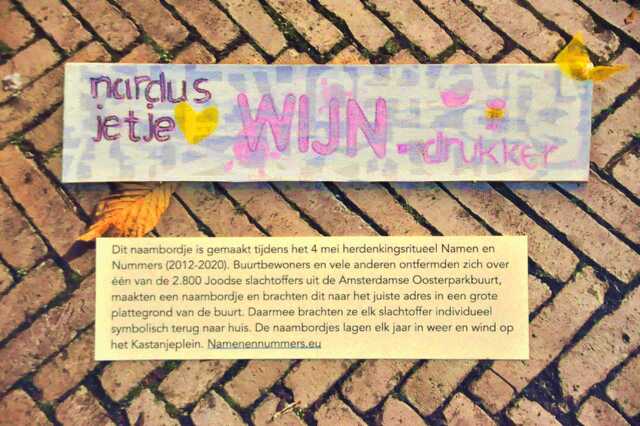 nardus
jetje WIJN-drukker
Dit naambordje is gemaakt tijdens het 4 mei herdenkingsritueel Namen en
Nummers (2012-2020). Buurtbewoners en vele anderen ontfermden zich over
één van de 2.800 Joodse slachtoffers uit de Amsterdamse Oosterparkbuurt,
maakten een naambordje en brachten dit naar het juiste adres in een grote
plattegrond van de buurt. Daarmee brachten ze elk slachtoffer individueel
symbolisch terug naar huis. De naambordjes lagen elk jaar in weer en wind op
het Kastanjeplein. Namenennummers.eu